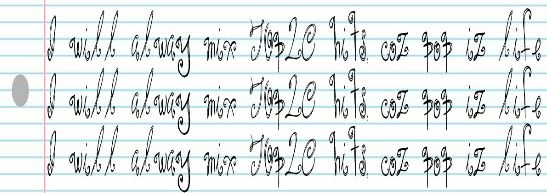 I will alway mix Top20 hits coz pop iz life
I will alway mix Top20 hits coz pop iz life
I will alway mix Top20 hits coz pop iz life